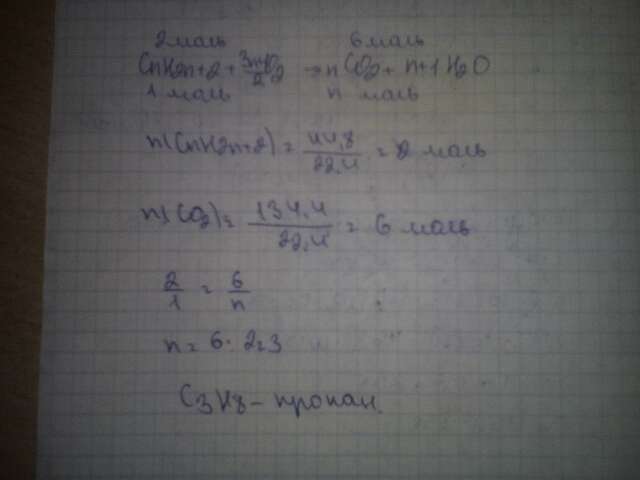 2 моль 6 моль
CnH2n+2 + 3n+1/2 O2 → n CO2 + n+1 H2O
1 моль n моль
n(CnH2n+2) = 44,8/22,4 = 2 моль
n(CO2) = 134,4/22,4 = 6 моль
2/1 = 6/n
n = 6 : 2 = 3
C3H8 - пропан.